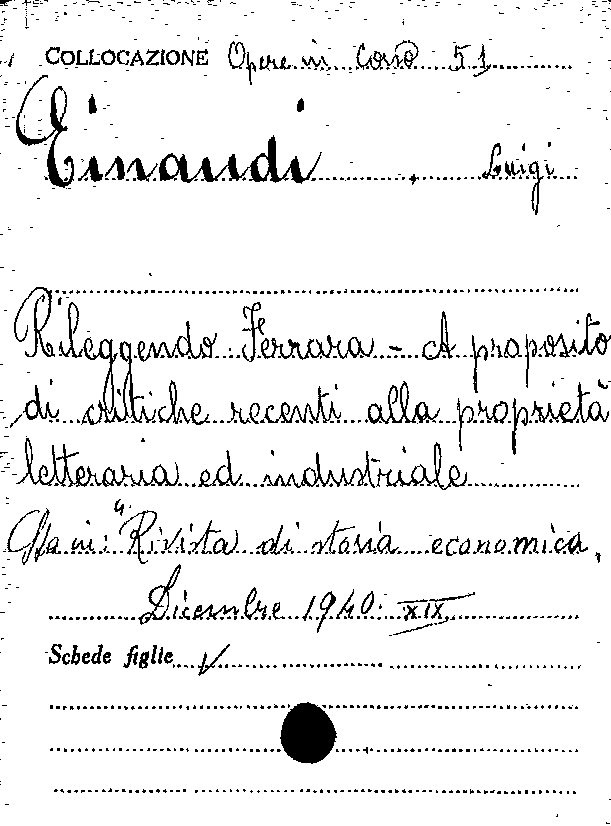 COLLOCAZIONE Opere in Corso 51
Einaudi, Luigi
Rileggendo Ferrara - A proposito
di critiche recenti alla proprietà
letteraria ed industriale
Sta in: "Rivista di storia economica,
Dicembre 1940. XIX
Schede figlie